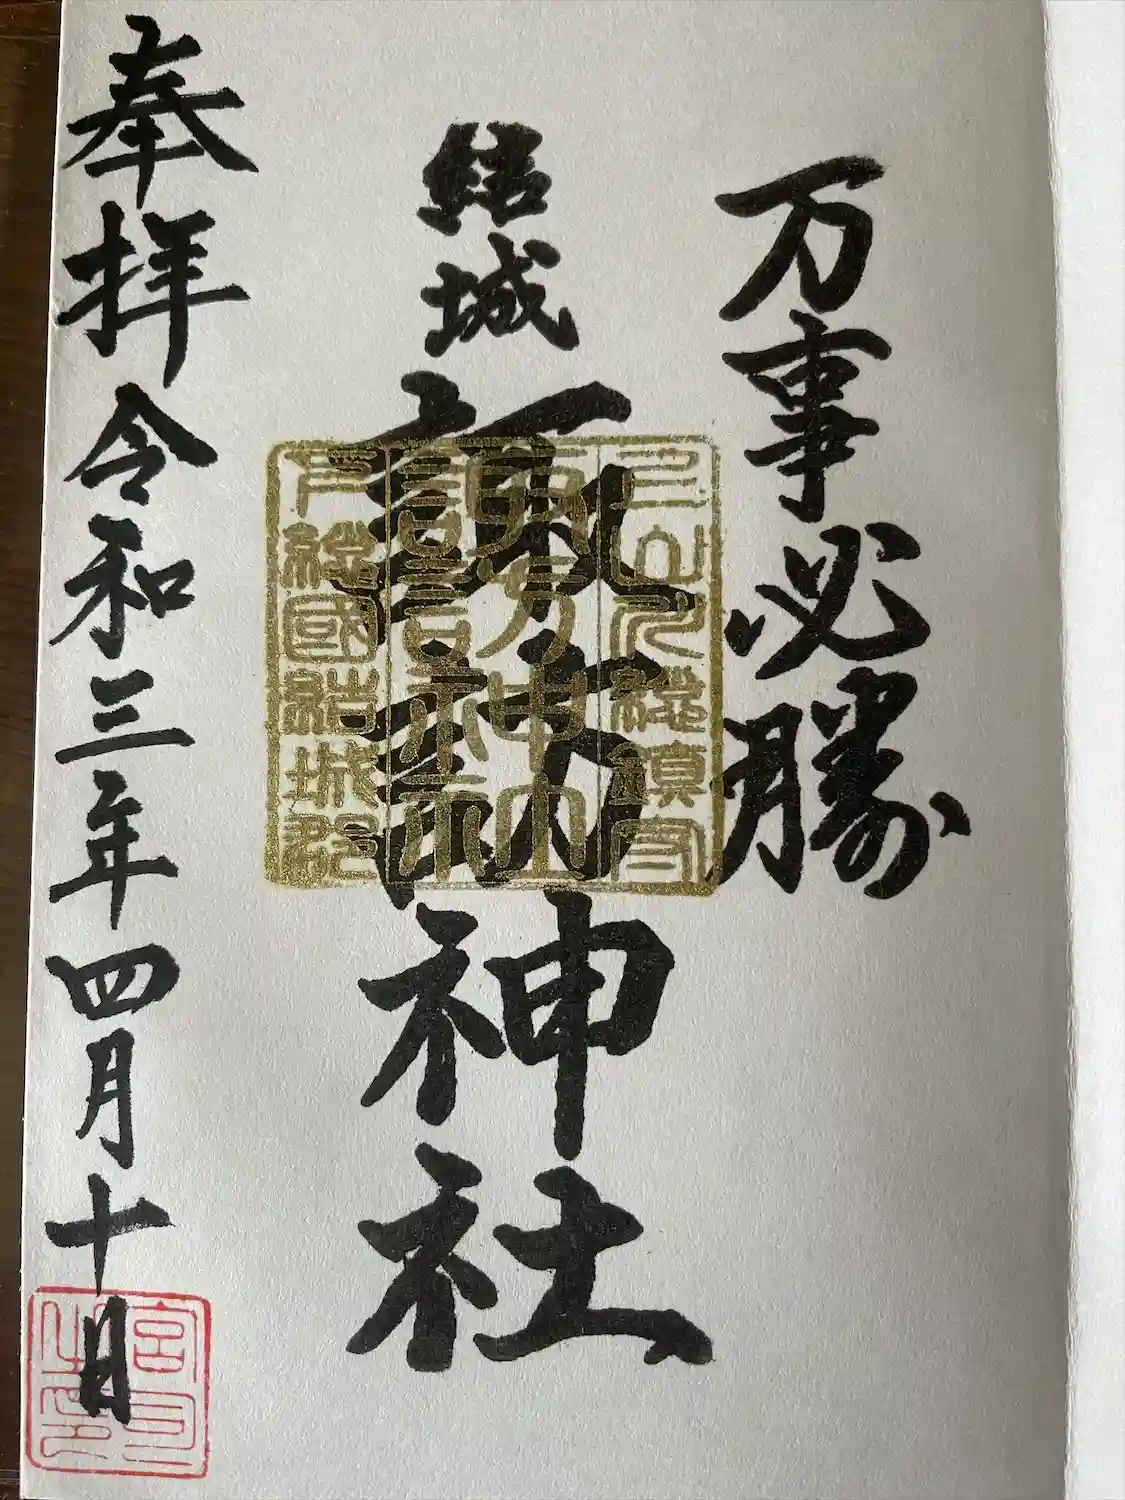 万事必勝
結城
諏訪神社
奉拝令和三年四月十日
諏方神社
下総國結城郡
宮司之印